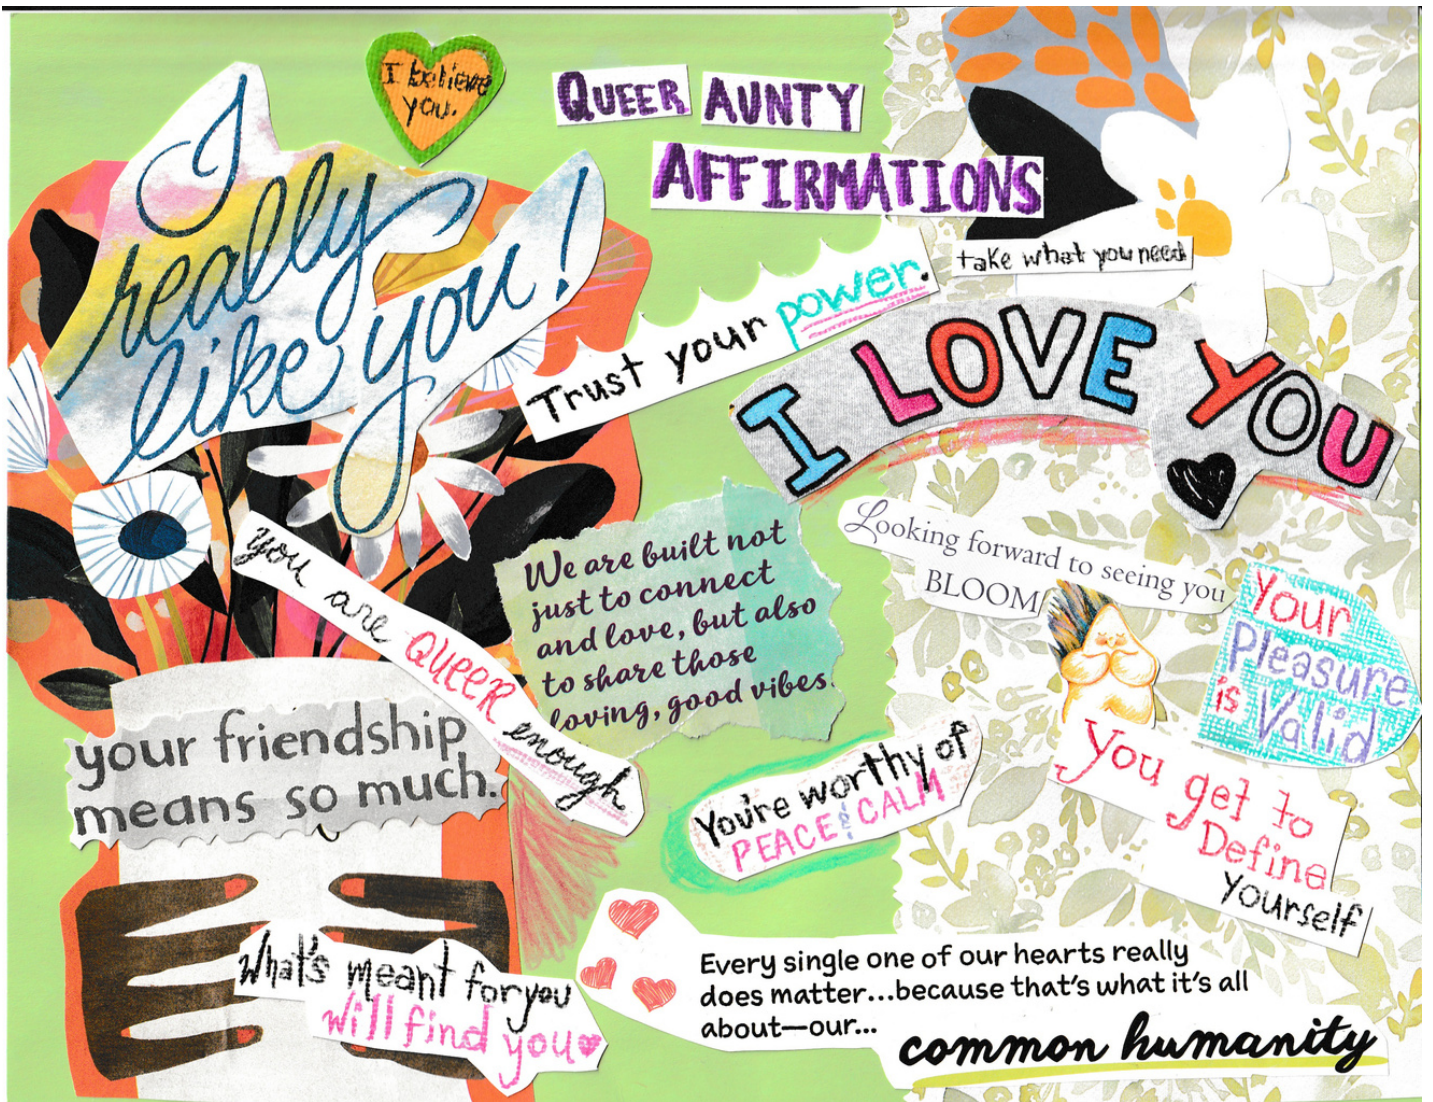 I believe
you.
QUEER AUNTY
AFFIRMATIONS
take what you need
I
really
like you!
Trust your power.
I LOVE YOU
Looking forward to seeing you
BLOOM
you are QUEER enough
We are built not
just to connect
and love, but also
to share those
loving, good vibes.
Your
Pleasure
is Valid
your friendship
means so much.
You're worthy of
PEACE & CALM
You get to
Define
yourself
What's meant for you
will find you
Every single one of our hearts really
does matter...because that's what it's all
about—our...
common humanity